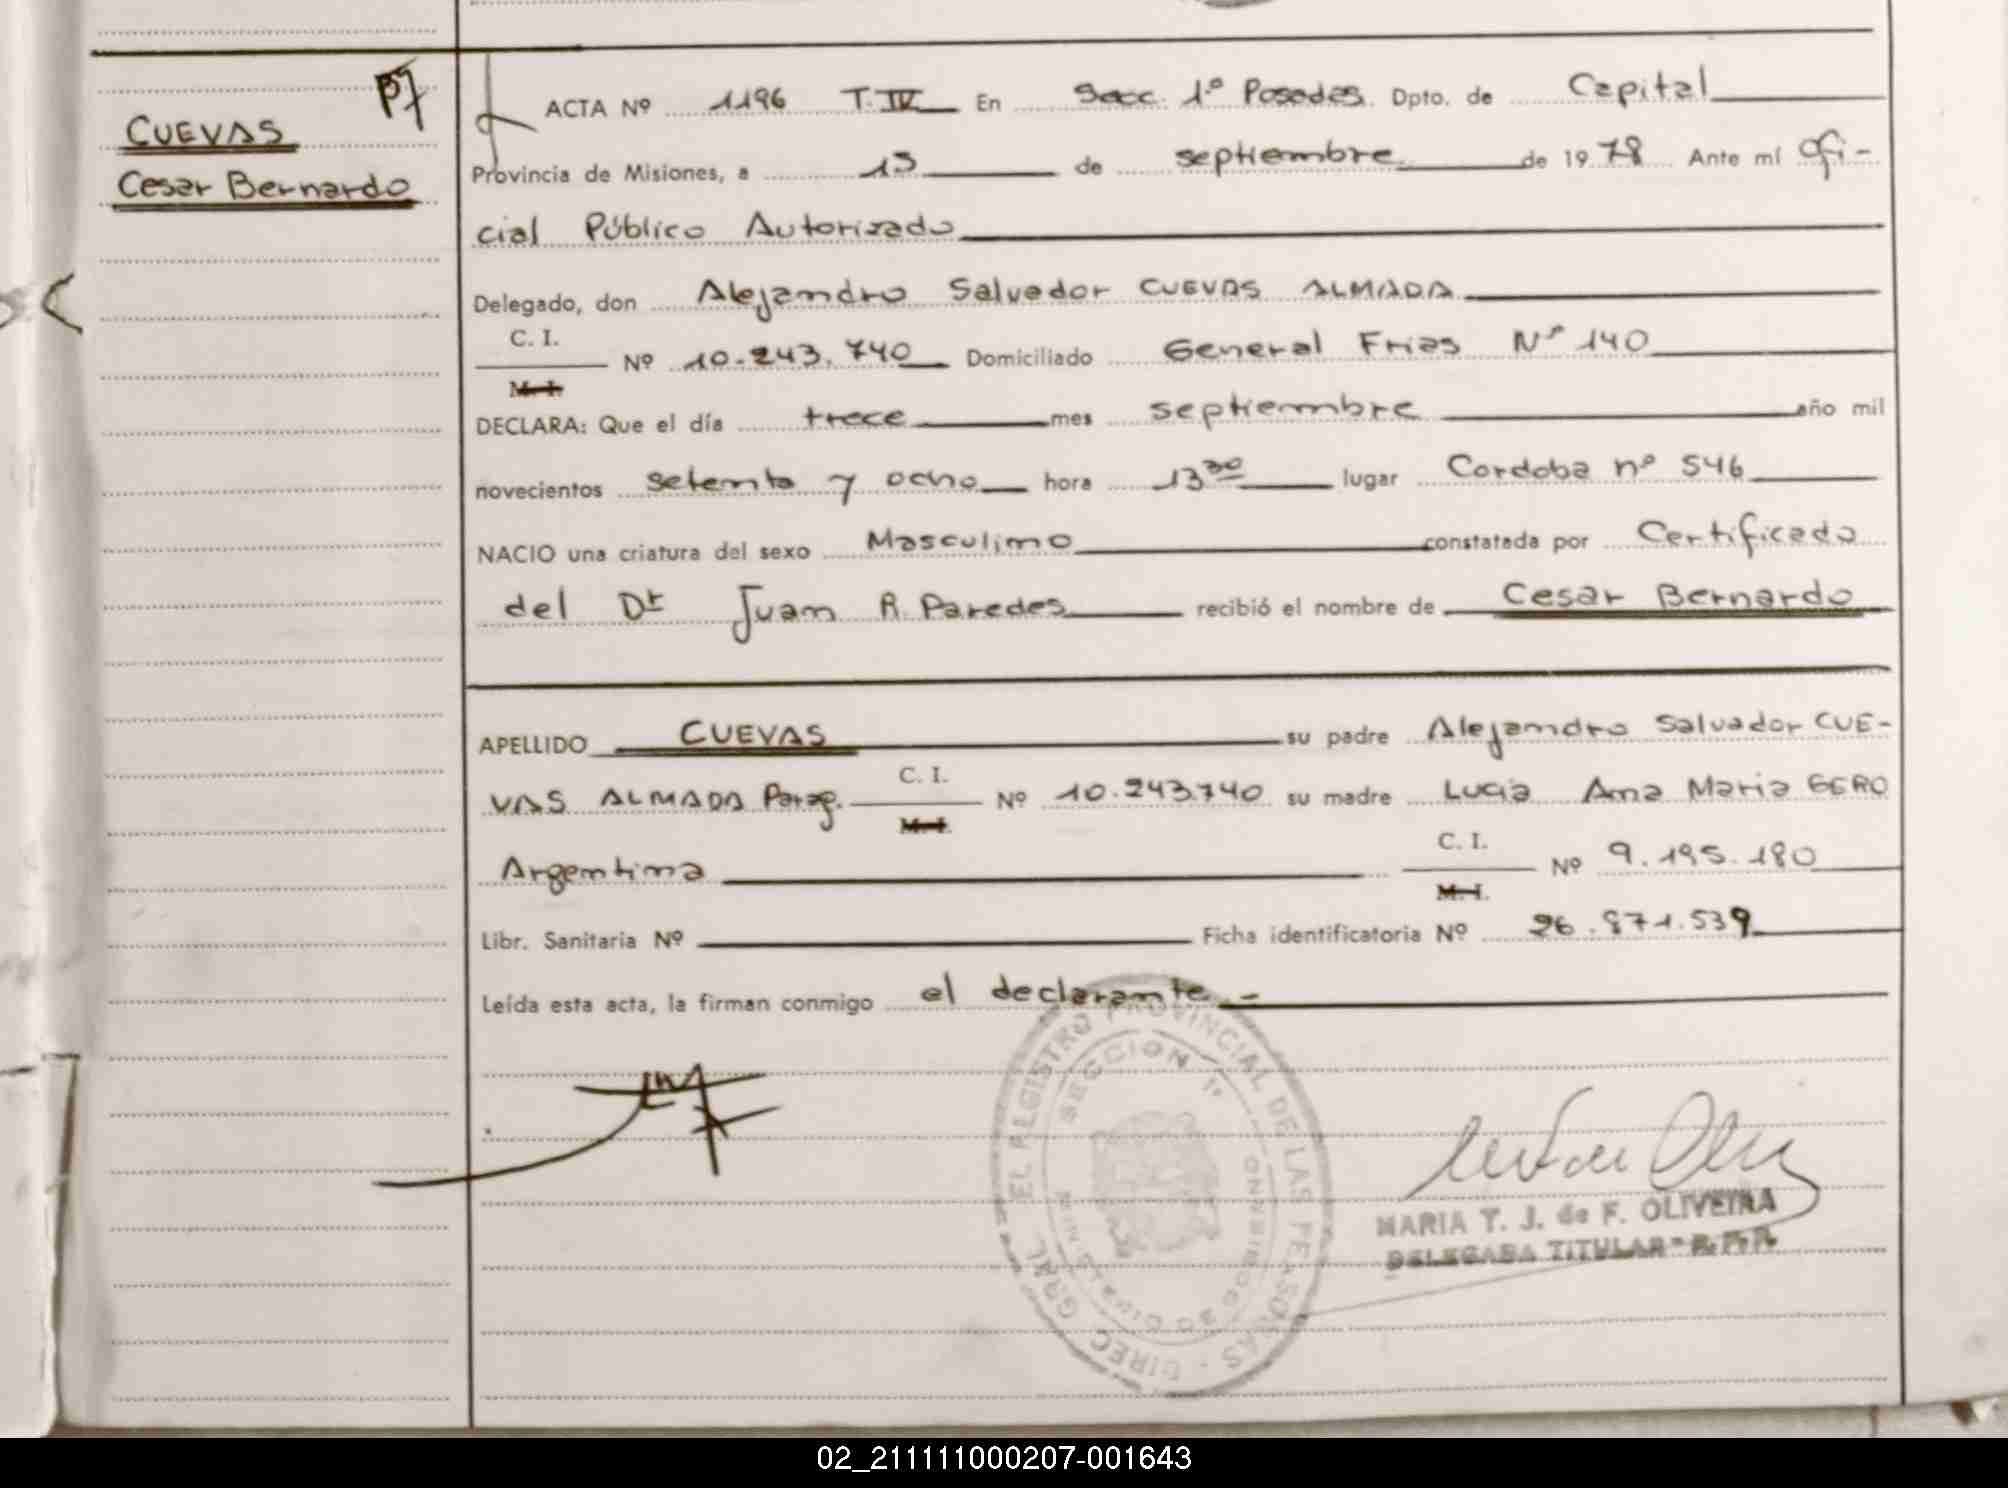 CUEVAS
Cesar Bernardo
ACTA Nº 1196 T. IV En Secc. 1º Posadas Dpto. de Capital
Provincia de Misiones, a 13 de septiembre de 1978 Ante mí Ofi-
cial Público Autorizado
Delegado, don Alejandro Salvador CUEVAS ALMADA
C. I.
Nº 10.243.740 Domiciliado General Frias Nº 140
M. I.
DECLARA: Que el día trece mes septiembre año mil
novecientos setenta y ocho hora 13 30 lugar Cordoba nº 546
NACIO una criatura del sexo Masculino constatada por Certificado
del Dr Juan R. Paredes recibió el nombre de Cesar Bernardo
APELLIDO CUEVAS su padre Alejandro Salvador CUE-
C. I.
VAS ALMADA Parag. Nº 10.243.740 su madre Lucia Ana Maria GERO
M. I.
C. I.
Argentina Nº 9.195.180
M. I.
Libr. Sanitaria Nº Ficha identificatoria Nº 26.871.539
Leída esta acta, la firman conmigo el declarante.-
DIREC. GRAL. EL REGISTRO PROVINCIAL DE LAS PERSONAS
SECCION 1º
MARIA T. J. de F. OLIVEIRA
DELEGADA TITULAR - R.P.P.
02_211111000207-001643